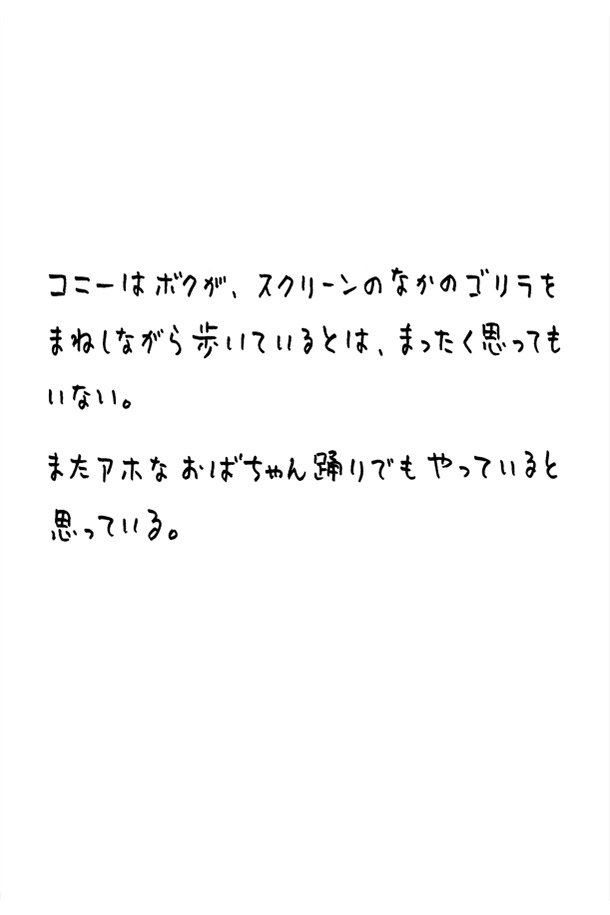 コミーはボクが、スクリーンのなかのゴリラを
まねしながら歩いているとは、まったく思っても
いない。
またアホなおばちゃん踊りでもやっていると
思っている。